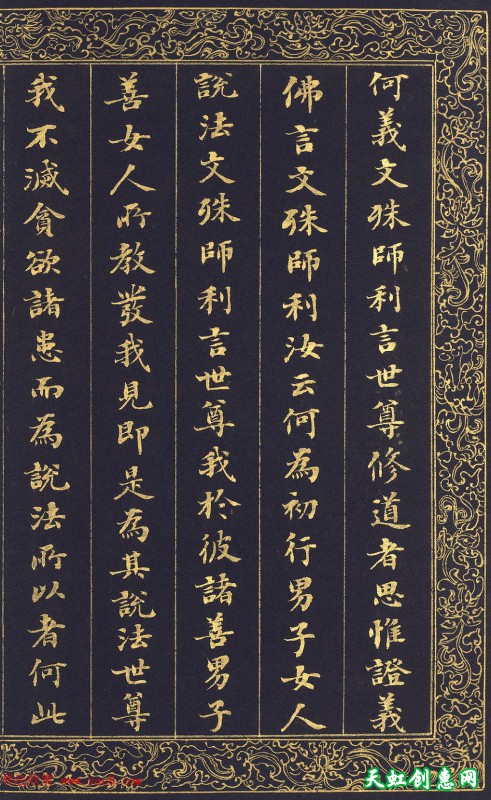 何義文殊師利言世尊修道者思惟證義
佛言文殊師利汝云何為初行男子女人
說法文殊師利言世尊我於彼諸善男子
善女人所教發我見即是為其說法世尊
我不滅貪欲諸患而為說法所以者何此
天虹创惠网